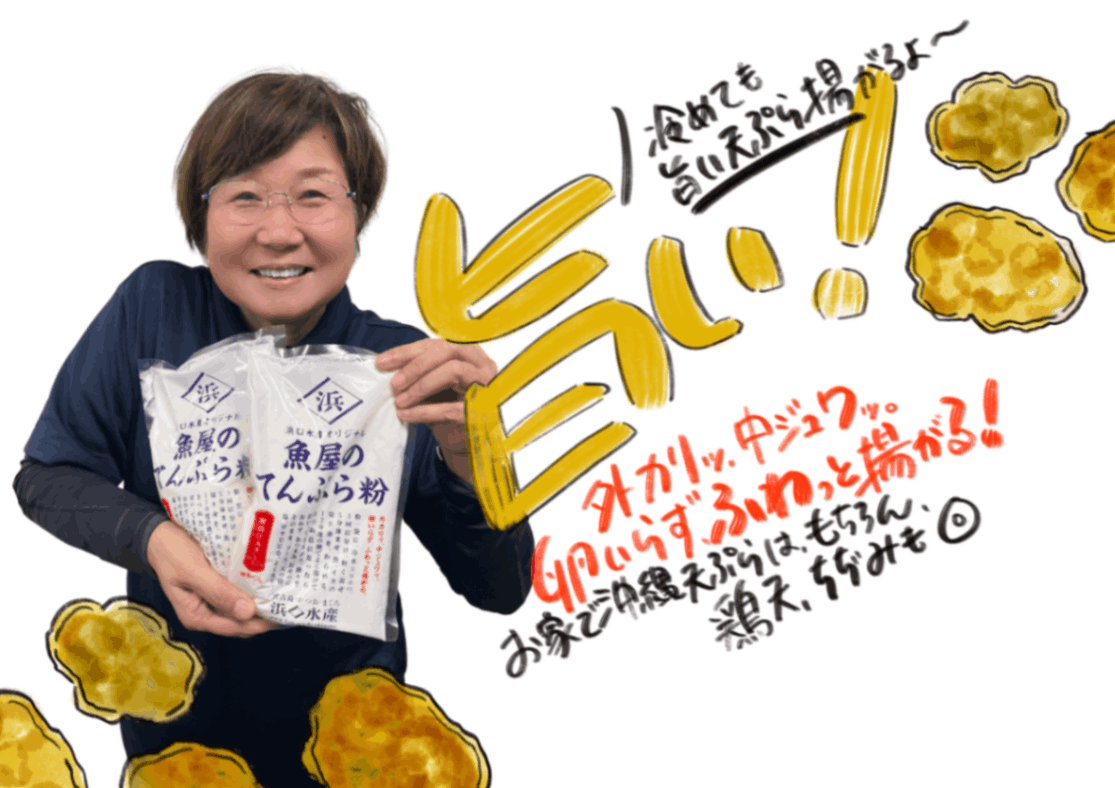 冷めても
旨い天ぷら揚がるよ〜
旨い!
外カリッ、中ジュワッ。
卵いらず、ふわっと揚がる!
お家で沖縄天ぷらは、もちろん、
鶏天、ちぢみも◎
浜
魚屋の
てんぷら粉
浜
浜口水産オリジナル
魚屋の
てんぷら粉
水産